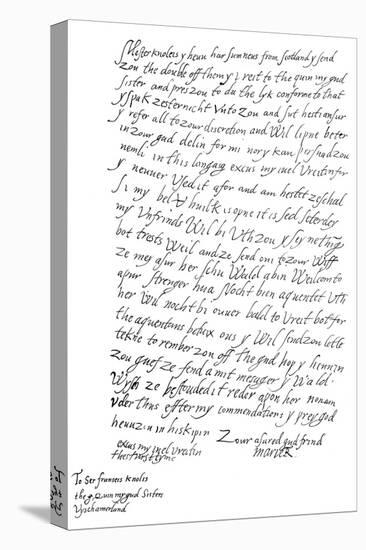 Mester Knoleis y heuu har sum neus from scotland y send
zou the double off them y vreit to the quin my gud
sister and pres zou to du the lyk conforme to that
y spak zesternicht vnto zou and sut hesti ansur
y refer all to zour discretion and wil lipne beter
in zour gud delin for mi nor y kan persuad zou
nemli in this langasg excus my iuel vreitin for
y neuuer vsed it afor and am hestet ze schal
si my bel huilk is opne it is sed seterday
my vnfrinds wil bi vth zou y sey nething
bot trests weil and ze send oni to zour wiff
ze mey asur her schu wald a bin weilcom to
a pur strenger hua nocht bien aquentet vth
her wil nocht bi ouuer bald to vreit bot for
the aquentans betwix ous y wil send zou litle
tekne to rember zou off the gud hop y heuu in
zou guef ze fend a mit mesager y wald
wysh ze bestouded it reder apon her non ani
vder thus effter my commendations y prey god
heuu zou in his kipin
Zour asured gud frind
Marie R
excus my iuel vreitin
thes furst tym
To Ser frances Knolis